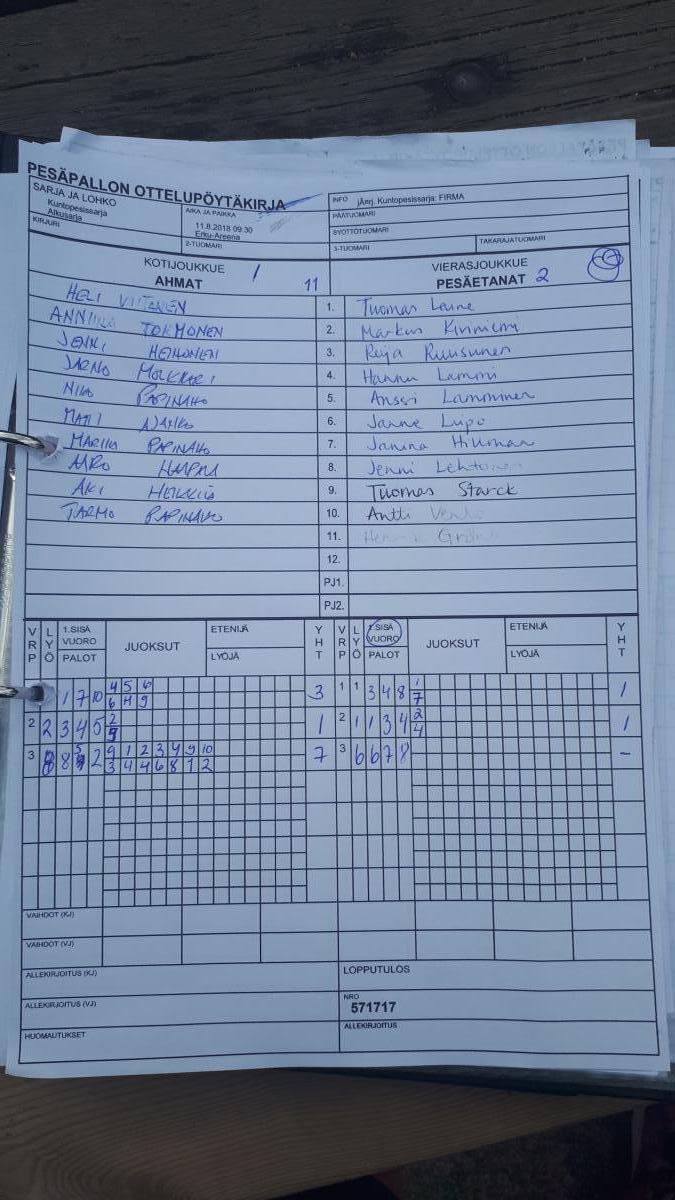 PESÄPALLON OTTELUPÖYTÄKIRJA
SARJA JA LOHKO
Kuntopesissarja
Alkusarja
AIKA JA PAIKKA
11.8.2018 09:30
Erku-Areena
INFO jÄnrj. Kuntopesissarja: FIRMA
PÄÄTUOMARI
SYÖTTÖTUOMARI
KIRJURI
2-TUOMARI
3-TUOMARI
TAKARAJATUOMARI
KOTIJOUKKUE 1
AHMAT 11
VIERASJOUKKUE
PESÄETANAT 2
HELI VIITANEN 1. Tuomas Leine
ANNIINA TORMONEN 2. Markus Kinniemi
JENNI HEIKONEN 3. Reija Ruusunen
JARNO 4. Hannu Lammi
NIKO PAPINAHO 5. Anssi Lamminen
MATTI 6. Janne Lupo
MARIKA PAPINAHO 7. Janina Hillman
8. Jenni Lehtonen
AKI 9. Tuomas Starck
TARMO PAPINAHO 10. Antti
11.
12.
PJ1.
PJ2.
VRP LYÖ 1.SISÄ VUORO PALOT JUOKSUT ETENIJÄ LYÖJÄ YHT VRP LYÖ 1.SISÄ VUORO PALOT JUOKSUT ETENIJÄ LYÖJÄ YHT
1 7 10 4 5 6 3 1 1 3 4 8 1 1
6 4 9 7
2 2 3 4 5 2 1 2 1 1 3 4 2 1
9 4
3 8 8 2 9 1 2 3 4 9 10 7 3 6 6 7 8 -
3 4 4 6 8 1 2
VAIHDOT (KJ)
VAIHDOT (VJ)
ALLEKIRJOITUS (KJ)
LOPPUTULOS
ALLEKIRJOITUS (VJ)
NRO
571717
HUOMAUTUKSET
ALLEKIRJOITUS